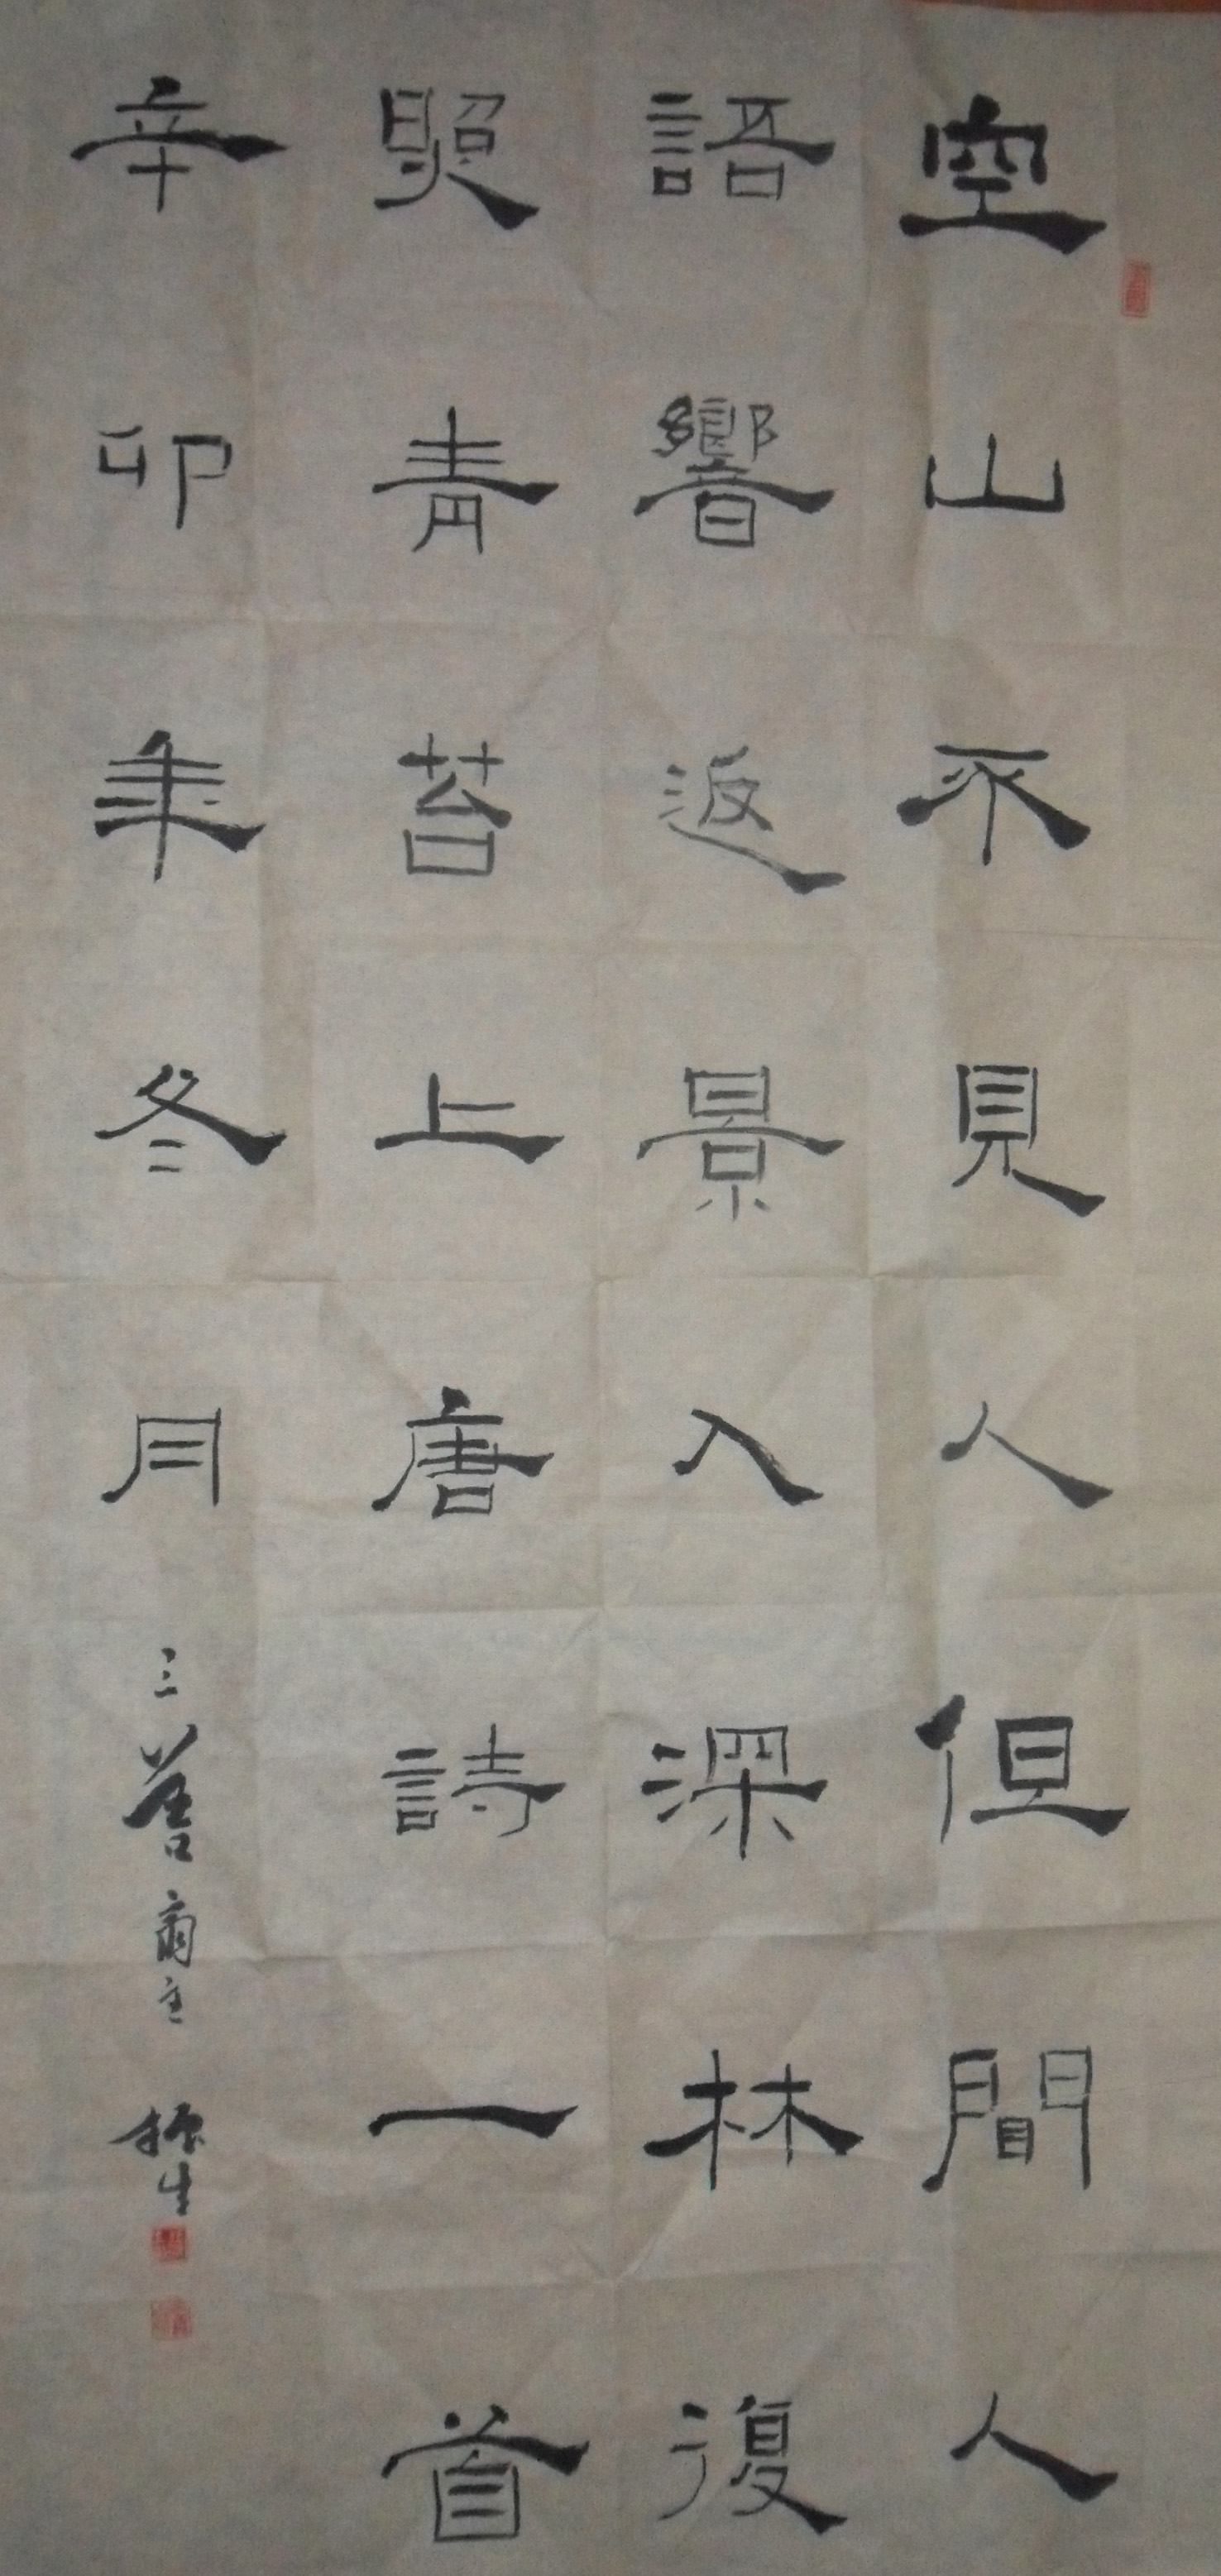 空山不見人但聞人
語響返景入深林復
照青苔上唐詩一首
辛卯年冬月三善齋主振生